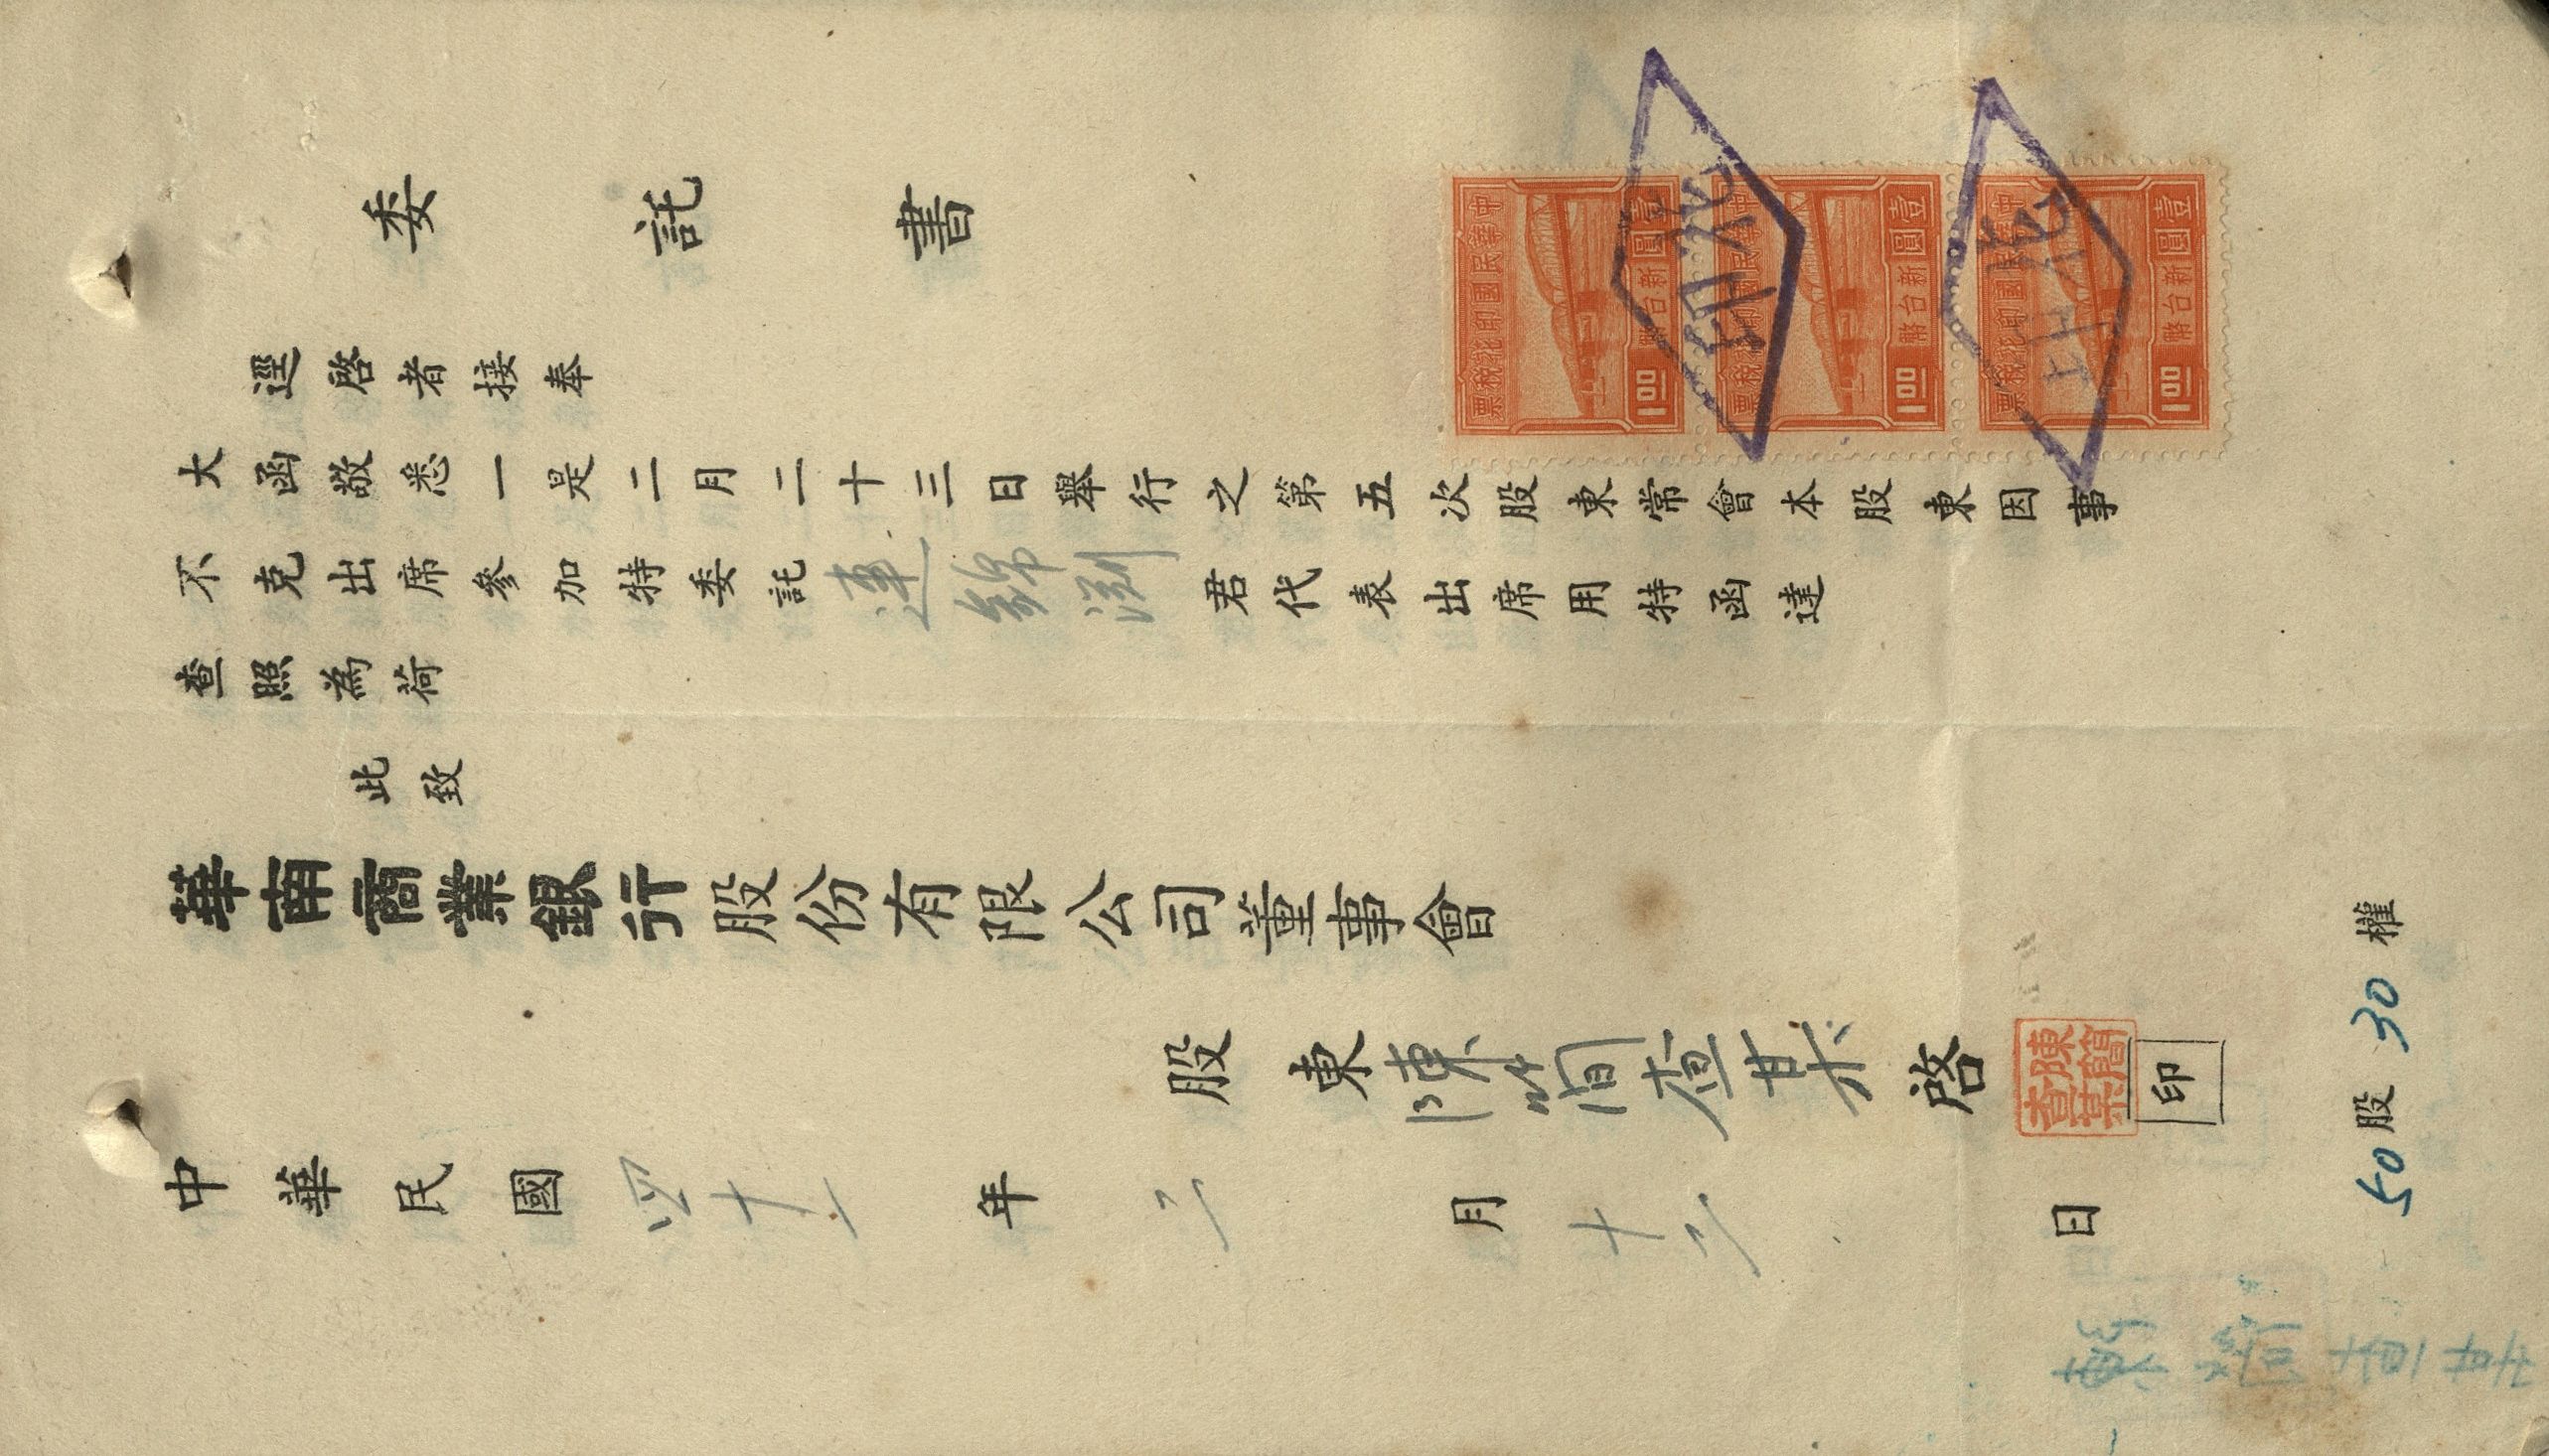 委託書
逕啓者接奉
大函敬悉一是二月二十三日舉行之第五次股東常會本股東因事
不克出席參加特委託連錦淵君代表出席用特函達
查照為荷
此致
華南商業銀行股份有限公司董事會
股東陳簡查某啓
陳簡
查某
印
中華民國四十二年二月十二日
50股30權
中華民國印花稅票
壹圓新台幣1.00
中華民國印花稅票
壹圓新台幣1.00
中華民國印花稅票
壹圓新台幣1.00